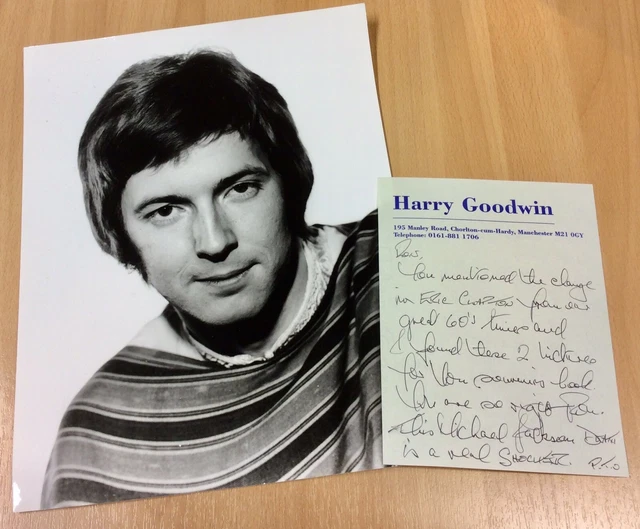 Harry Goodwin
195 Manley Road, Chorlton-cum-Hardy, Manchester M21 0GY
Telephone: 0161-881 1706
You mentioned the change
in ERIC CLAPTON from our
great 60's times and
I found these 2 pictures
for your souvenirs book
You are so right
This Michael Jackson DEATH
is a real SHOCKER. P.T.O